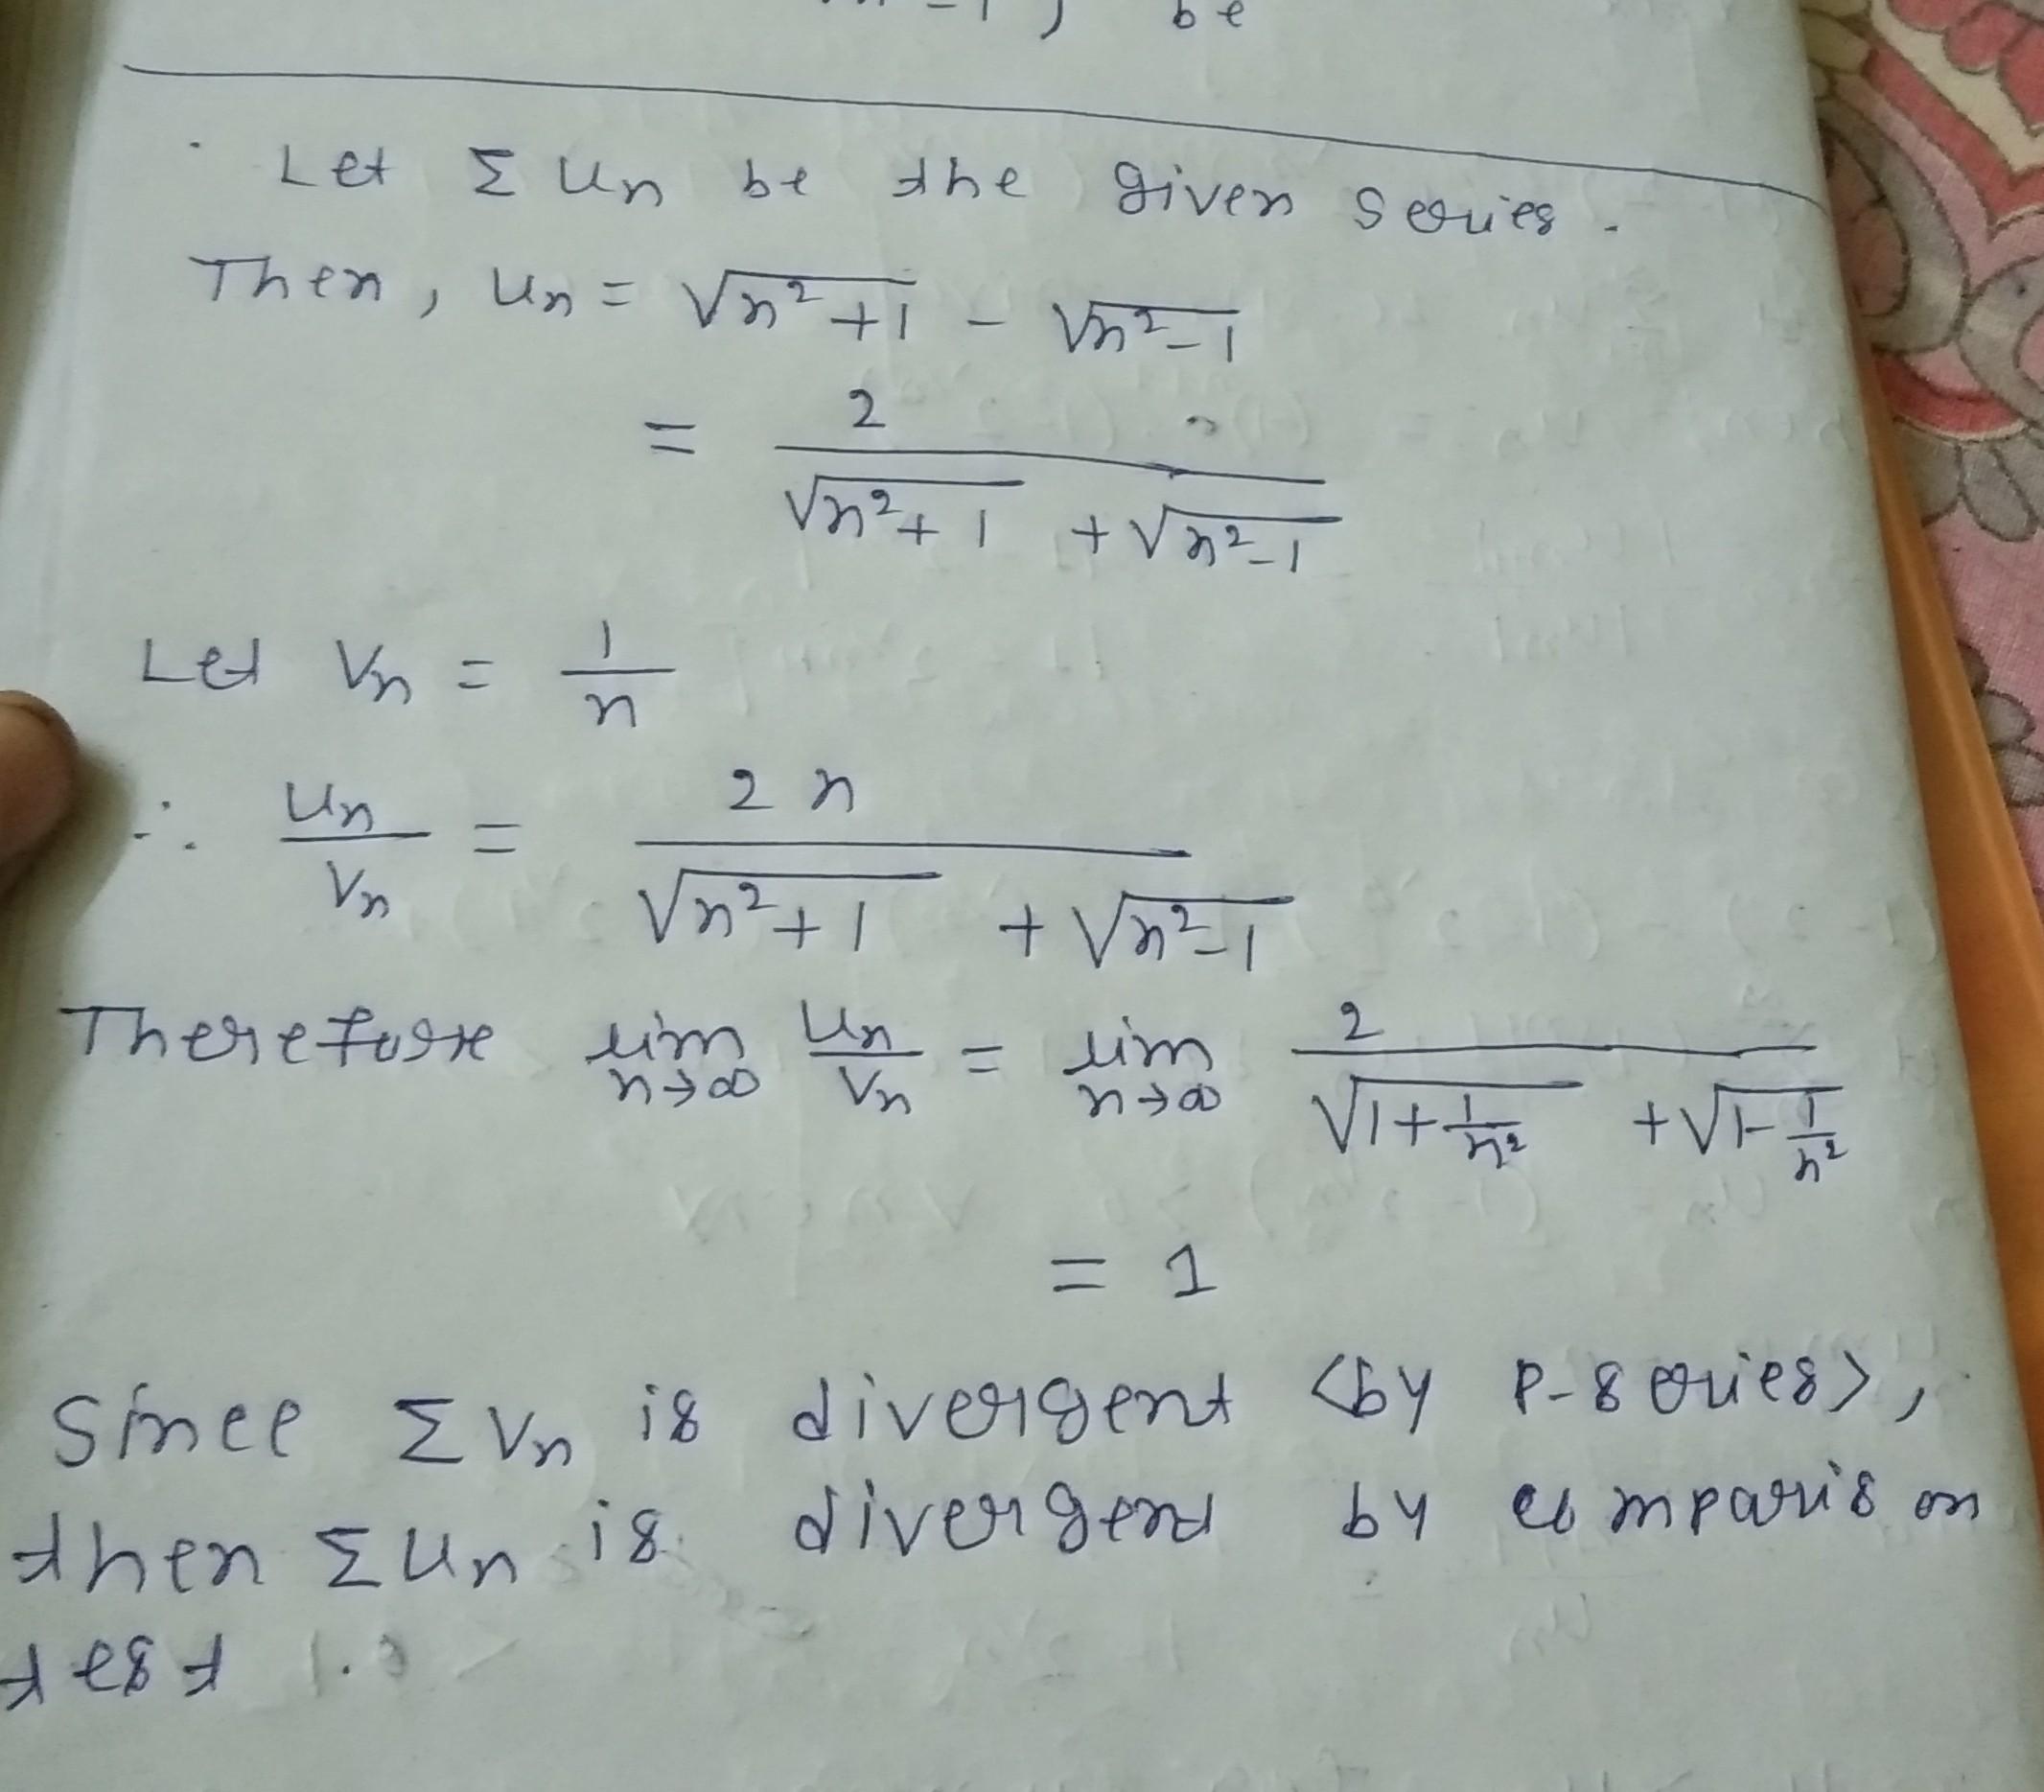 be
Let Σ Un be the given series.
Then, Un = √(n²+1) - √(n²-1)
= 2 / (√(n²+1) + √(n²-1))
Let Vn = 1/n
∴ Un/Vn = 2n / (√(n²+1) + √(n²-1))
Therefore lim n→∞ Un/Vn = lim n→∞ 2 / (√(1+1/n²) + √(1-1/n²))
= 1
Since Σ Vn is divergent <by P-series>,
then Σ Un is divergent by comparison
test